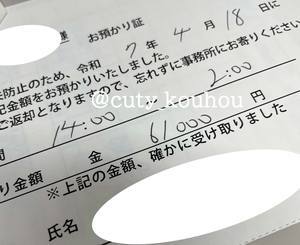 様 お預かり証
防止のため、令和 7 年 4 月 18 日に
記金額をお預かりいたしました。
ご返却となりますので、忘れずに事務所にお寄りください
間 14:00 2:00
り金額 金 61000 円
※上記の金額、確かに受け取りました
氏名
@cuty_kouhou